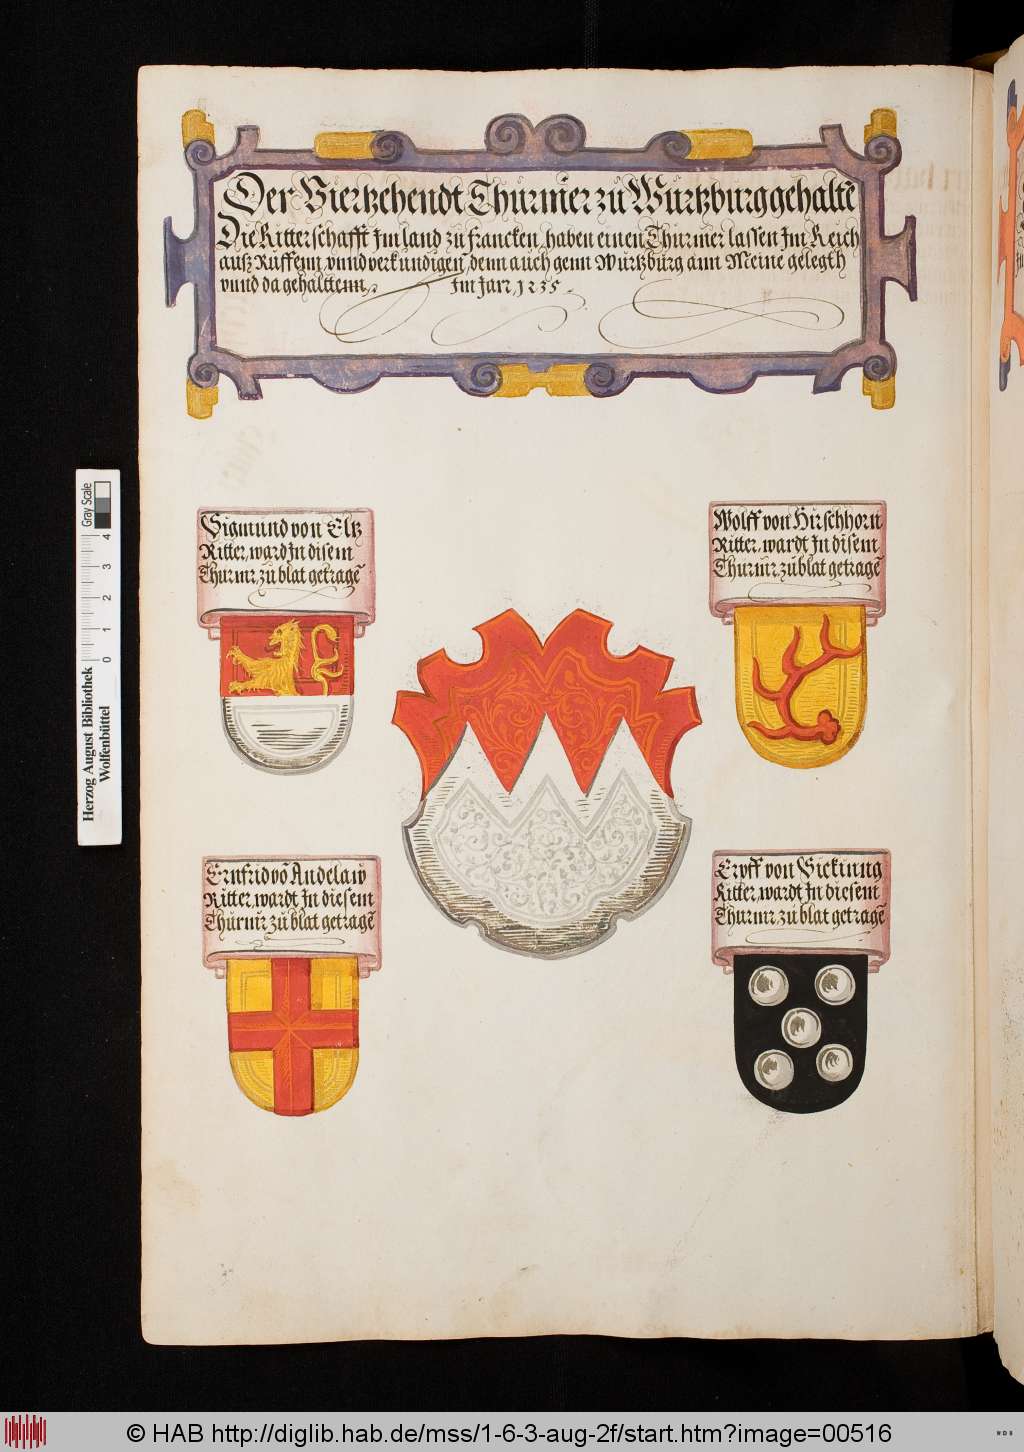 Der Viertzehendt Thurnier zu Wurtzburg gehaltē
Die Ritterschafft Im land zu francken, haben einen Thurnier lassen Im Reich
auß Rüffenn, vnnd verkundigen, denn auch genn Wurtzburg ann Meine gelegth
vnnd da gehalttenn,
Im Jarr, 1235
Sigmund von Eltz
Ritter, ward In disem
Thurnir, zu blat getragē
Wolff von Hirschhorn
Ritter, wardt In disem
Thurnir, zu blat getragē
Ernfrid vō Andelaw
Ritter, wardt In diesem
Thurnir, zu blat getragē
Erpff von Sickinng
Ritter, wardt In diesem
Thurnir, zu blat getragē
Herzog August Bibliothek
Wolfenbüttel
0 1 2 3 4
Gray Scale
© HAB http://diglib.hab.de/mss/1-6-3-aug-2f/start.htm?image=00516